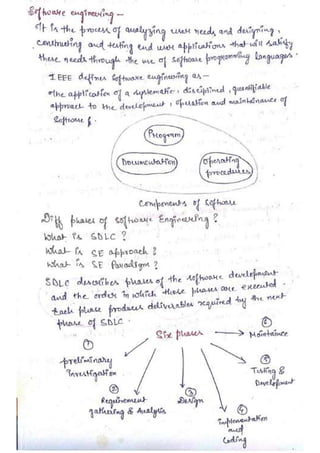 Software engineering –
It is the process of analyzing user needs and designing,
constructing and testing end user applications that will satisfy
these needs through the use of software programming languages.
IEEE defines software engineering as –
"the application of a systematic, disciplined, quantifiable
approach to the development, operation and maintenance of
Software.
Program
Documentation
Operating
procedures
Components of Software
Diff phases of Software Engineering?
What is SDLC?
What is SE approach?
What is SE Paradigm?
SDLC describes phases of the software development
and the order in which those phases are executed.
Each phase produces deliverables required by the next
phase of SDLC.
Six phases
①
preliminary
Investigation
②
Requirement
gathering & Analysis
③
Design
④
Implementation
and
Coding
⑤
Testing &
Development
⑥
Maintaince